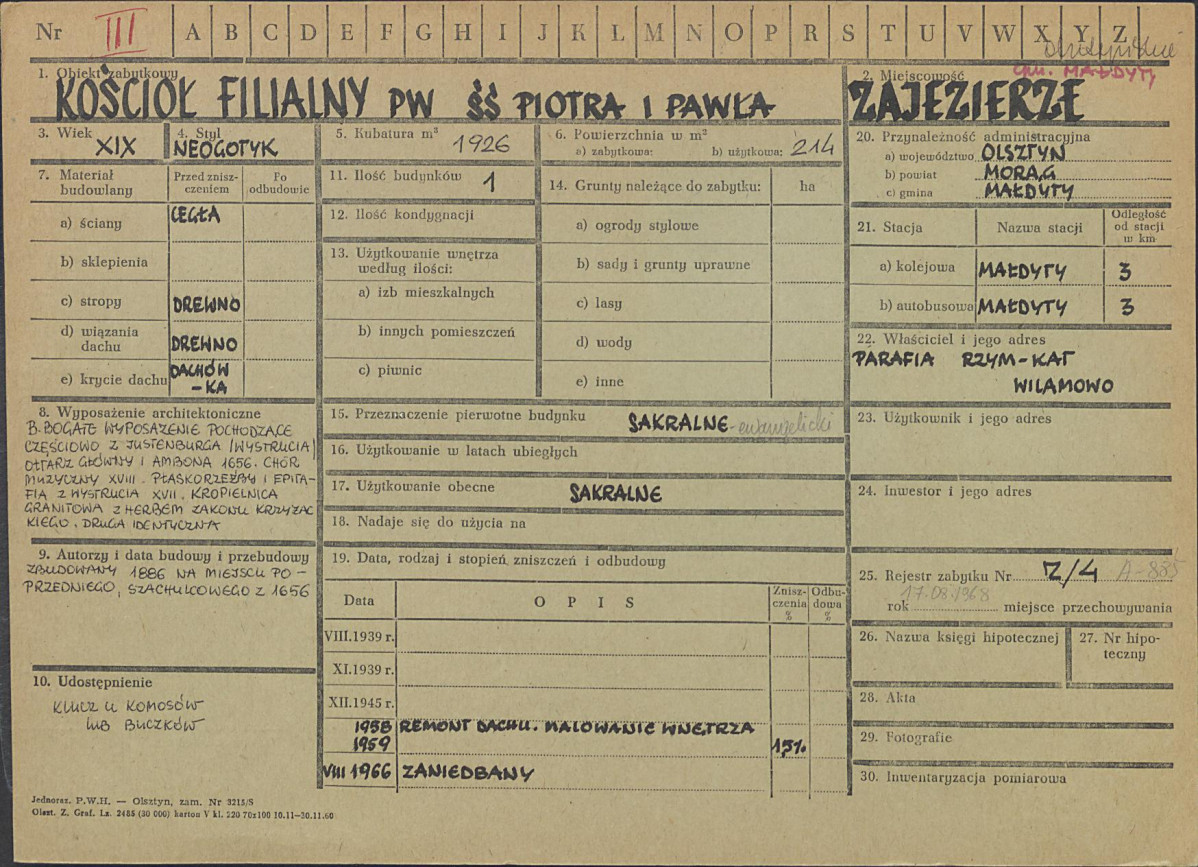 Nr III A B C D E F G H I J K Ł M N O P R S T U V W X Y Z
gm. MAŁDYTY
1. Obiekt zabytkowy
KOŚCIÓŁ FILIALNY PW ŚŚ PIOTRA I PAWŁA
2. Miejscowość
ZAJEZIERZE
3. Wiek
XIX
4. Styl
NEOGOTYK
5. Kubatura m³
1926
6. Powierzchnia w m²
a) zabytkowa: b) użytkowa: 214
7. Materiał budowlany
Przed zniszczeniem
Po odbudowie
a) ściany CEGŁA
b) sklepienia
c) stropy DREWNO
d) wiązania dachu DREWNO
e) krycie dachu DACHÓW-KA
8. Wyposażenie architektoniczne
B. BOGATE WYPOSAŻENIE POCHODZĄCE
CZĘŚCIOWO Z JUSTENBURGA /WYSTRUCIA/
OŁTARZ GŁÓWNY I AMBONA 1656. CHÓR
MUZYCZNY XVIII. PŁASKORZEŹBY I EPITA-
FIA Z WYSTRUCIA XVII. KROPIELNICA
GRANITOWA Z HERBEM ZAKONU KRZYŻAC
KIEGO. DRUGA IDENTYCZNA
9. Autorzy i data budowy i przebudowy
ZBUDOWANY 1886 NA MIEJSCU PO-
PRZEDNIEGO, SZACHULCOWEGO Z 1656
10. Udostępnienie
KLUCZ U KOMOSÓW
LUB BUCZKÓW
11. Ilość budynków 1
12. Ilość kondygnacji
13. Użytkowanie wnętrza
według ilości:
a) izb mieszkalnych
b) innych pomieszczeń
c) piwnic
14. Grunty należące do zabytku: ha
a) ogrody stylowe
b) sady i grunty uprawne
c) lasy
d) wody
e) inne
15. Przeznaczenie pierwotne budynku SAKRALNE - ewangelicki
16. Użytkowanie w latach ubiegłych
17. Użytkowanie obecne SAKRALNE
18. Nadaje się do użycia na
19. Data, rodzaj i stopień zniszczeń i odbudowy
Data OPIS Zniszczenia % Odbudowa %
VIII.1939 r.
XI.1939 r.
XII.1945 r.
1958 REMONT DACHU. MALOWANIE WNĘTRZA
1959 15%
VIII 1966 ZANIEDBANY
20. Przynależność administracyjna
a) województwo OLSZTYN
b) powiat MORĄG
c) gmina MAŁDYTY
21. Stacja Nazwa stacji Odległość od stacji w km
a) kolejowa MAŁDYTY 3
b) autobusowa MAŁDYTY 3
22. Właściciel i jego adres
PARAFIA RZYM-KAT
WILAMOWO
23. Użytkownik i jego adres
24. Inwestor i jego adres
25. Rejestr zabytku Nr Z/4 A-885
17.08.1968
rok miejsce przechowywania
26. Nazwa księgi hipotecznej
27. Nr hipo-
teczny
28. Akta
29. Fotografie
30. Inwentaryzacja pomiarowa
Jednoraz. P.W.H. — Olsztyn, zam. Nr 3215/S
Olszt. Z. Graf. Lz. 2485 (30 000) karton V kl. 220 70x100 10.11—30.11.60